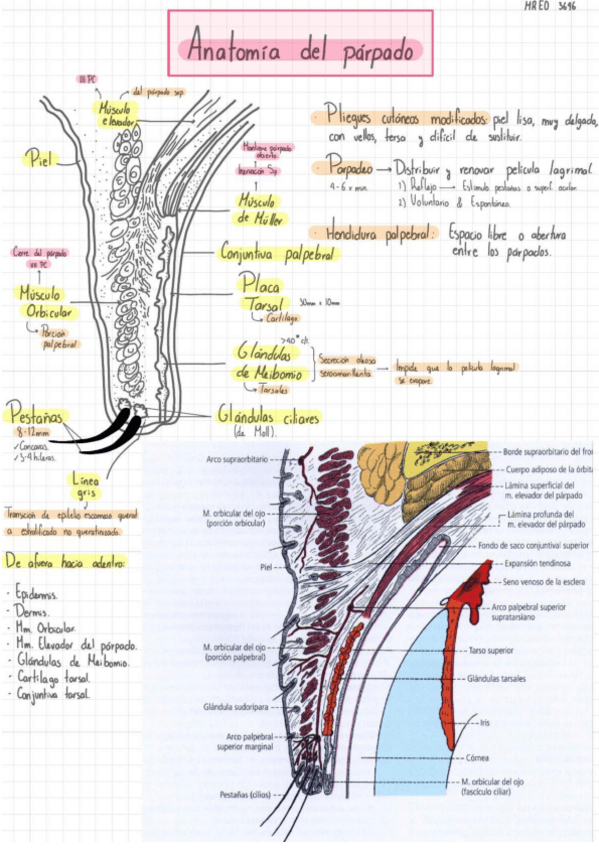 MREO 3696
Anatomía del párpado
III PC
del párpado sup.
Músculo
elevador
Piel
Mantiene párpado
abierto.
Inervación Sy
Músculo
de Müller
Conjuntiva palpebral
Cierre del párpado
VII PC
Músculo
Orbicular
Porción
palpebral
Placa
Tarsal
30mm x 10mm
Cartílago
Glándulas
de Meibomio
Tarsales
Secreción oleosa
Impide que la película lagrimal
se evapore.
Glándulas ciliares
(de Moll).
Pestañas
8-12mm
✓Concavas.
✓3-4 hileras.
Línea
gris
Transición de epitelio escamoso querat
a estratificado no queratinizado.
· Pliegues cutáneos modificados: piel lisa, muy delgada,
con vellos, tersa y difícil de sustituir.
· Parpadeo → Distribuir y renovar película lagrimal.
4-6 x min.
1) Reflejo → Estímulo pestañas o superf. ocular.
2) Voluntario & Espontáneo.
· Hendidura palpebral: Espacio libre o abertura
entre los párpados.
De afuera hacia adentro:
· Epidermis.
· Dermis.
· Mm. Orbicular.
· Mm. Elevador del párpado.
· Glándulas de Meibomio.
· Cartílago tarsal.
· Conjuntiva tarsal.
Arco supraorbitario
M. orbicular del ojo
(porción orbicular)
Piel
M. orbicular del ojo
(porción palpebral)
Glándula sudorípara
Arco palpebral
superior marginal
Pestañas (cilios)
Borde supraorbitario del fro
Cuerpo adiposo de la órbita
Lámina superficial del
m. elevador del párpado
Lámina profunda del
m. elevador del párpado
Fondo de saco conjuntival superior
Expansión tendinosa
Seno venoso de la esclera
Arco palpebral superior
supratarsiano
Tarso superior
Glándulas tarsales
Iris
Córnea
M. orbicular del ojo
(fascículo ciliar)